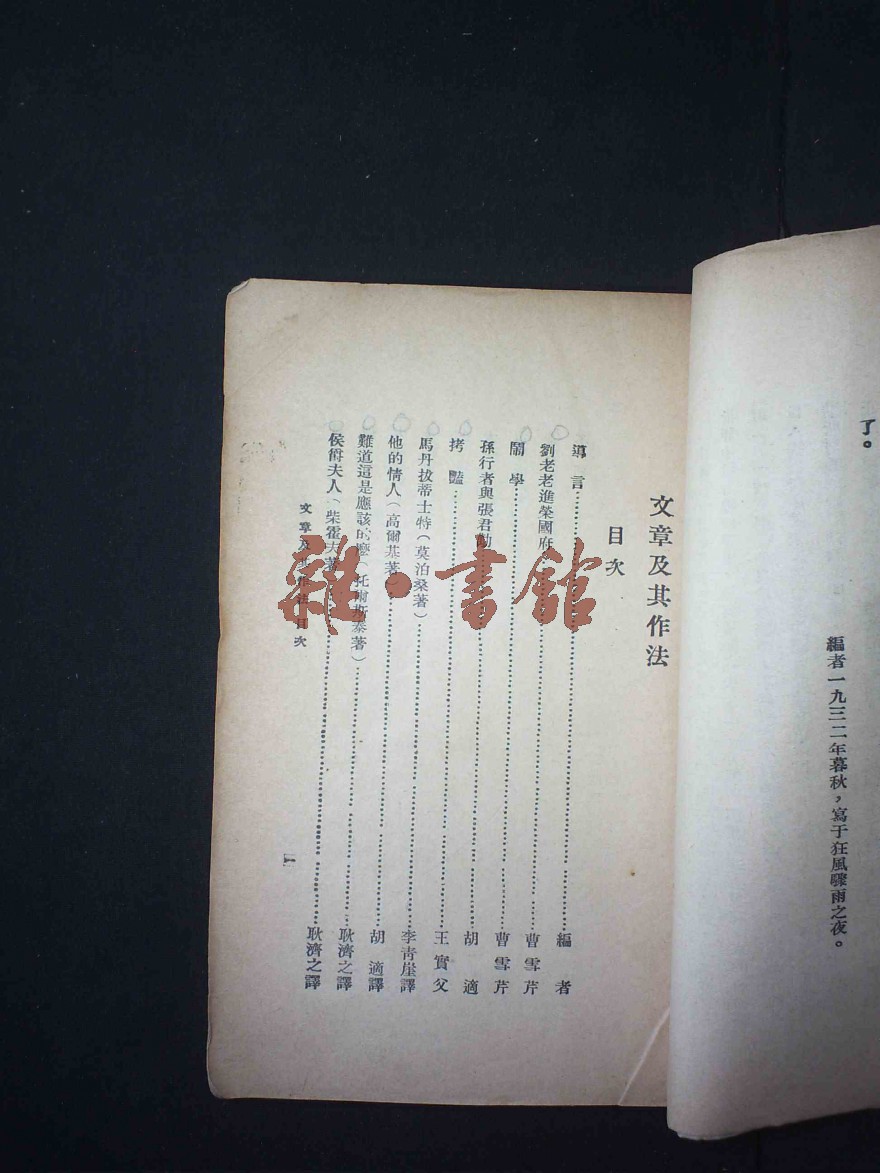 了。
編者一九三二年暮秋，寫于狂風驟雨之夜。
文章及其作法
目次
導言……編者
劉老老進榮國府……曹雪芹
鬧學……曹雪芹
孫行者與張君勱……胡適
拷豔……王實父
馬丹拔蒂士特（莫泊桑著）……李青崖譯
他的情人（高爾基著）……胡適譯
難道這是應該的麼（托爾斯泰著）……耿濟之譯
侯爵夫人（柴霍夫著）……耿濟之譯
文章及其作法 目次
一
雜·書館